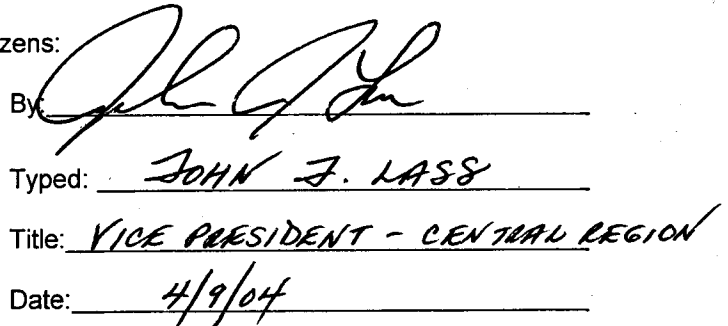 zens:
By:
Typed: JOHN J. LASS
Title: VICE PRESIDENT - CENTRAL REGION
Date: 4/9/04